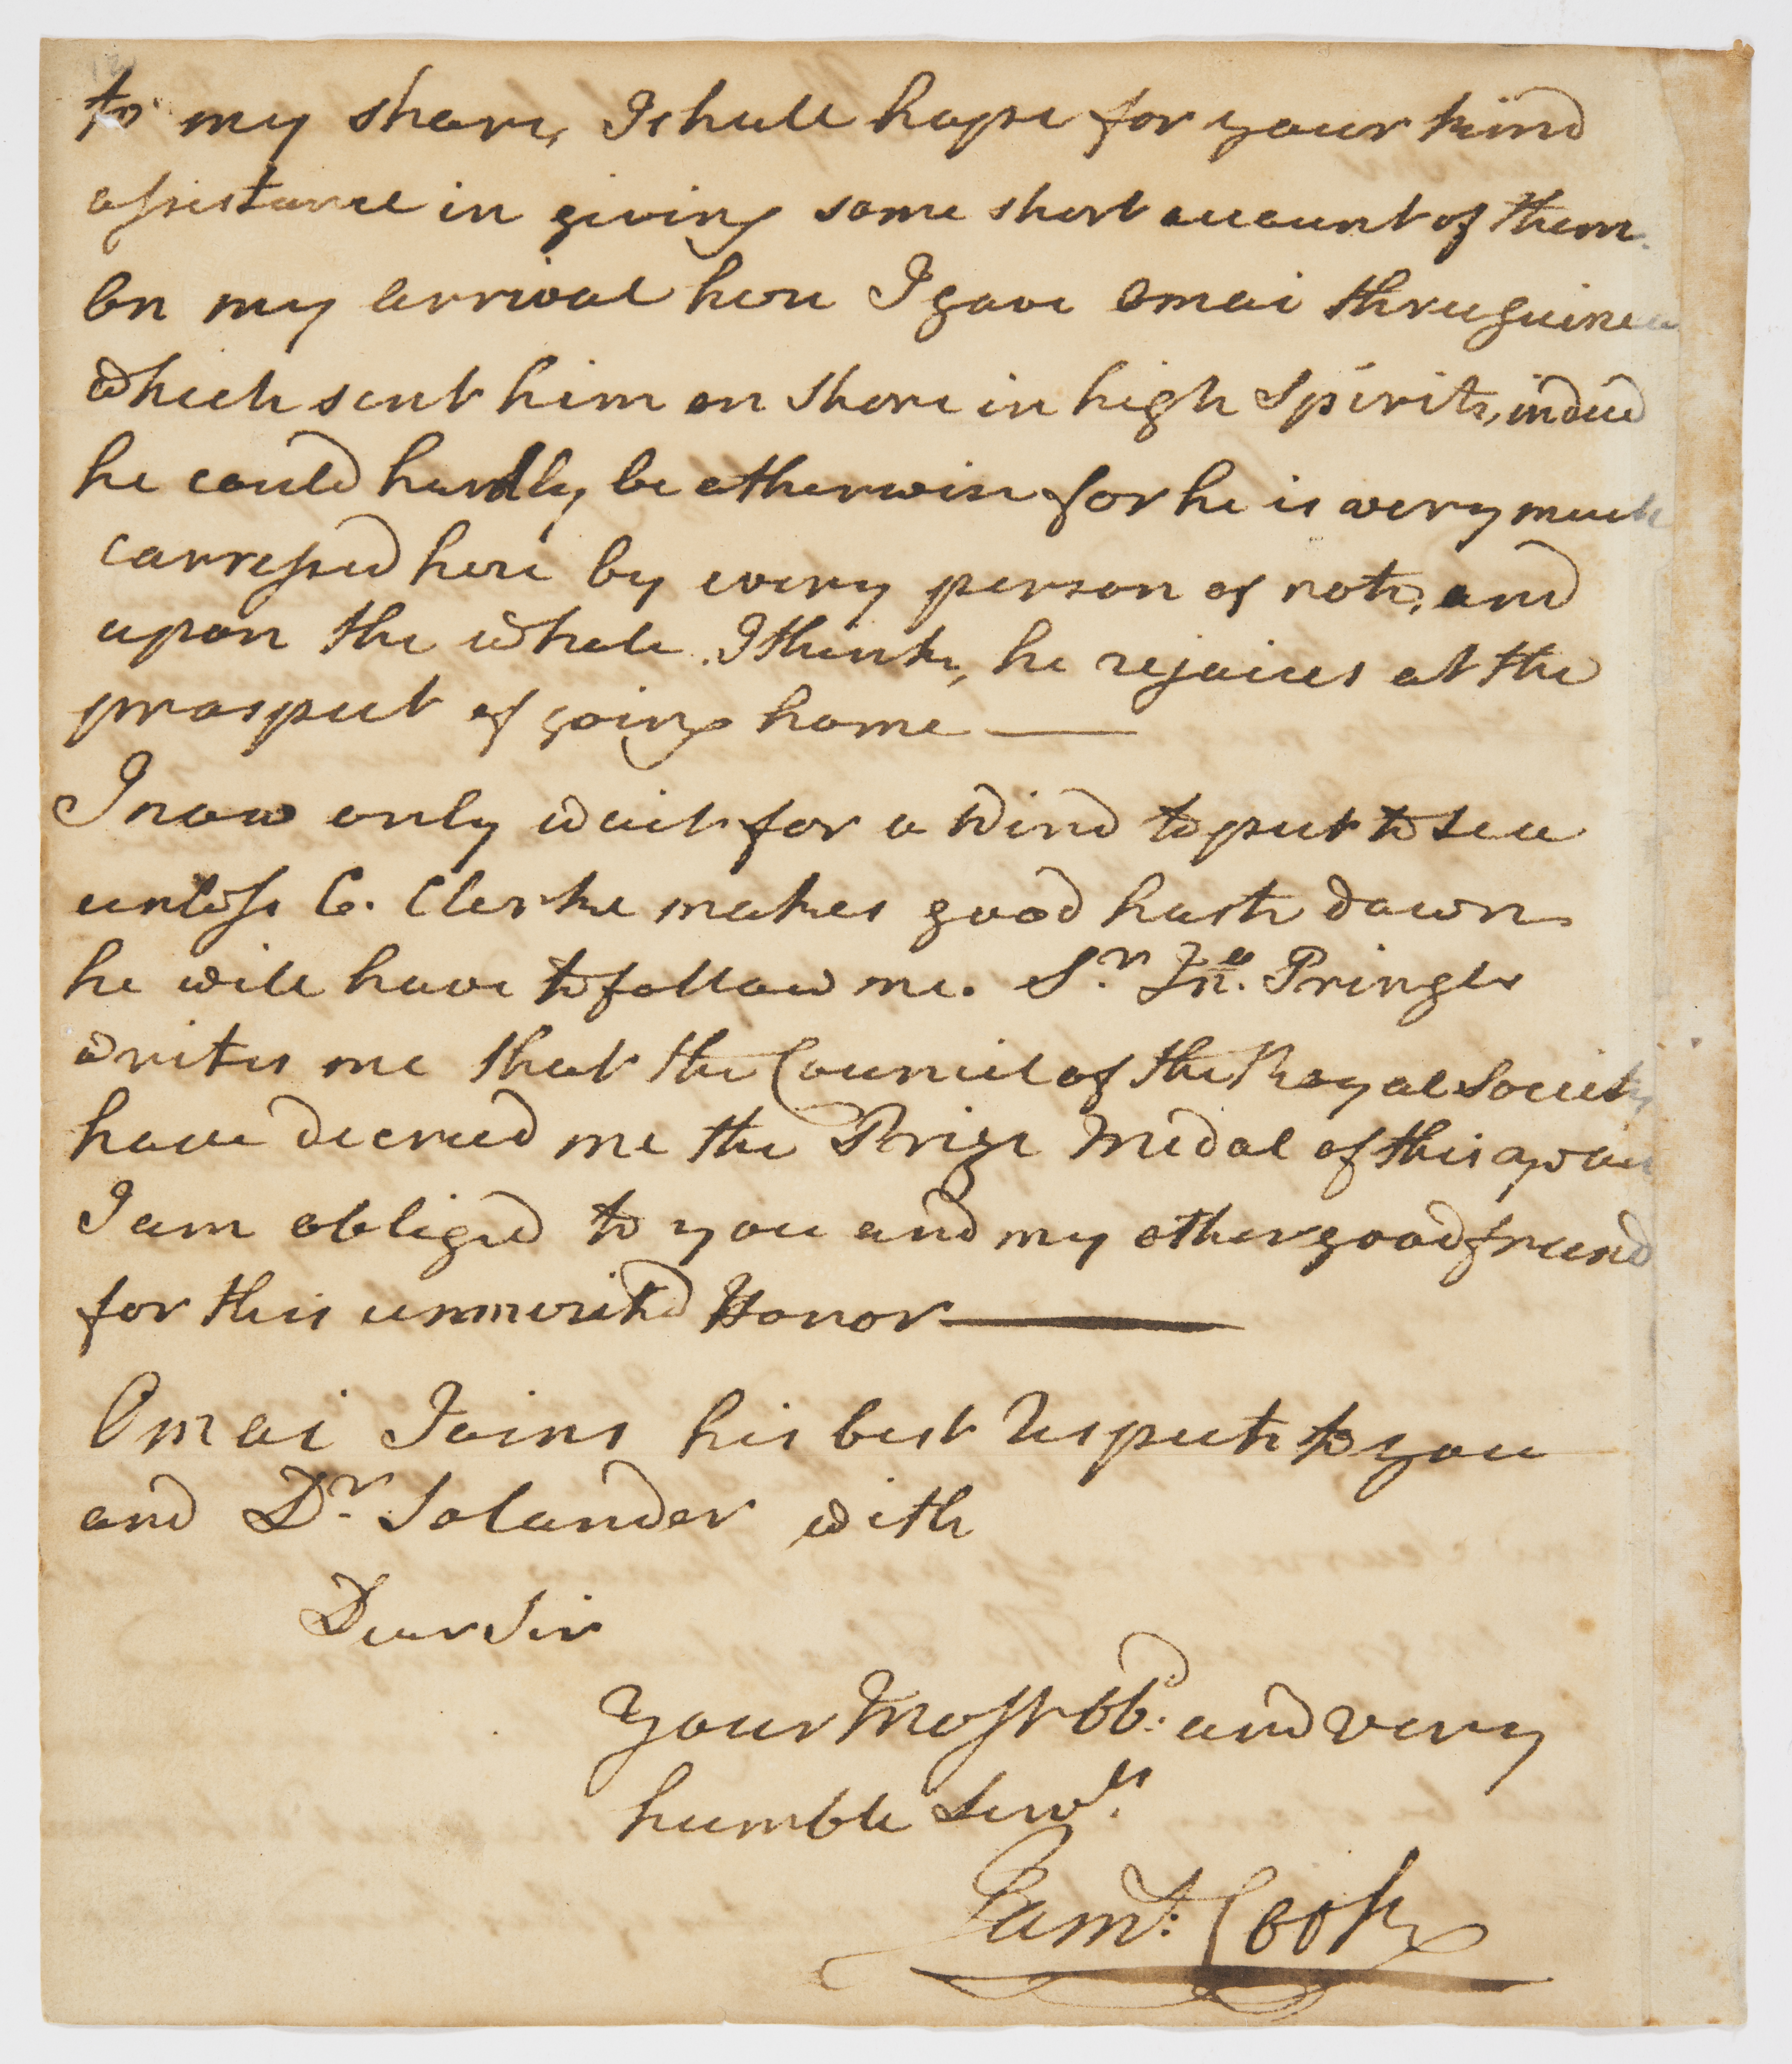 to my share, I shall hope for your kind
assistance in giving some short account of them.
On my arrival here I gave Omai three guineas
which sent him on shore in high Spirits, indeed
he could hardly be otherwise for he is very much
carressed here by every person of note, and
upon the whole, I think, he rejoices at the
prospect of going home ——
I now only wait for a Wind to put to Sea
unless C. Clerke makes good haste down
he will have to follow me. Sr. Jno. Pringle
writes me that the Council of the Royal Society
have decreed me the Prize Medal of this year
I am obliged to you and my other good friend
for this unmerited Honor ——
Omai Joins his best Respects to you
and Dr. Solander with
Dear Sir
Your Most Obd. and very
humble Servt.
Jams. Cook